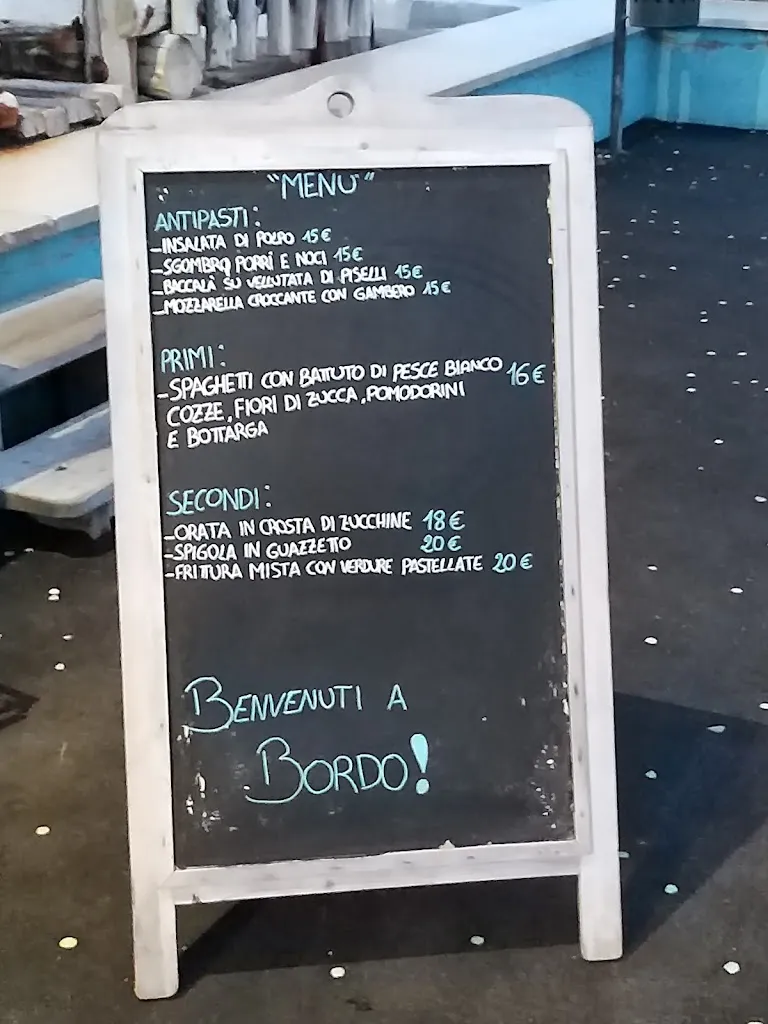 "MENÙ"
ANTIPASTI:
-INSALATA DI POLPO 15€
-SGOMBRO PORRI E NOCI 15€
-BACCALÀ SU VELLUTATA DI PISELLI 15€
-MOZZARELLA CROCCANTE CON GAMBERO 15€
PRIMI:
-SPAGHETTI CON BATTUTO DI PESCE BIANCO 16€
COZZE, FIORI DI ZUCCA, POMODORINI
E BOTTARGA
SECONDI:
-ORATA IN CROSTA DI ZUCCHINE 18€
-SPIGOLA IN GUAZZETTO 20€
-FRITTURA MISTA CON VERDURE PASTELLATE 20€
BENVENUTI A
BORDO!